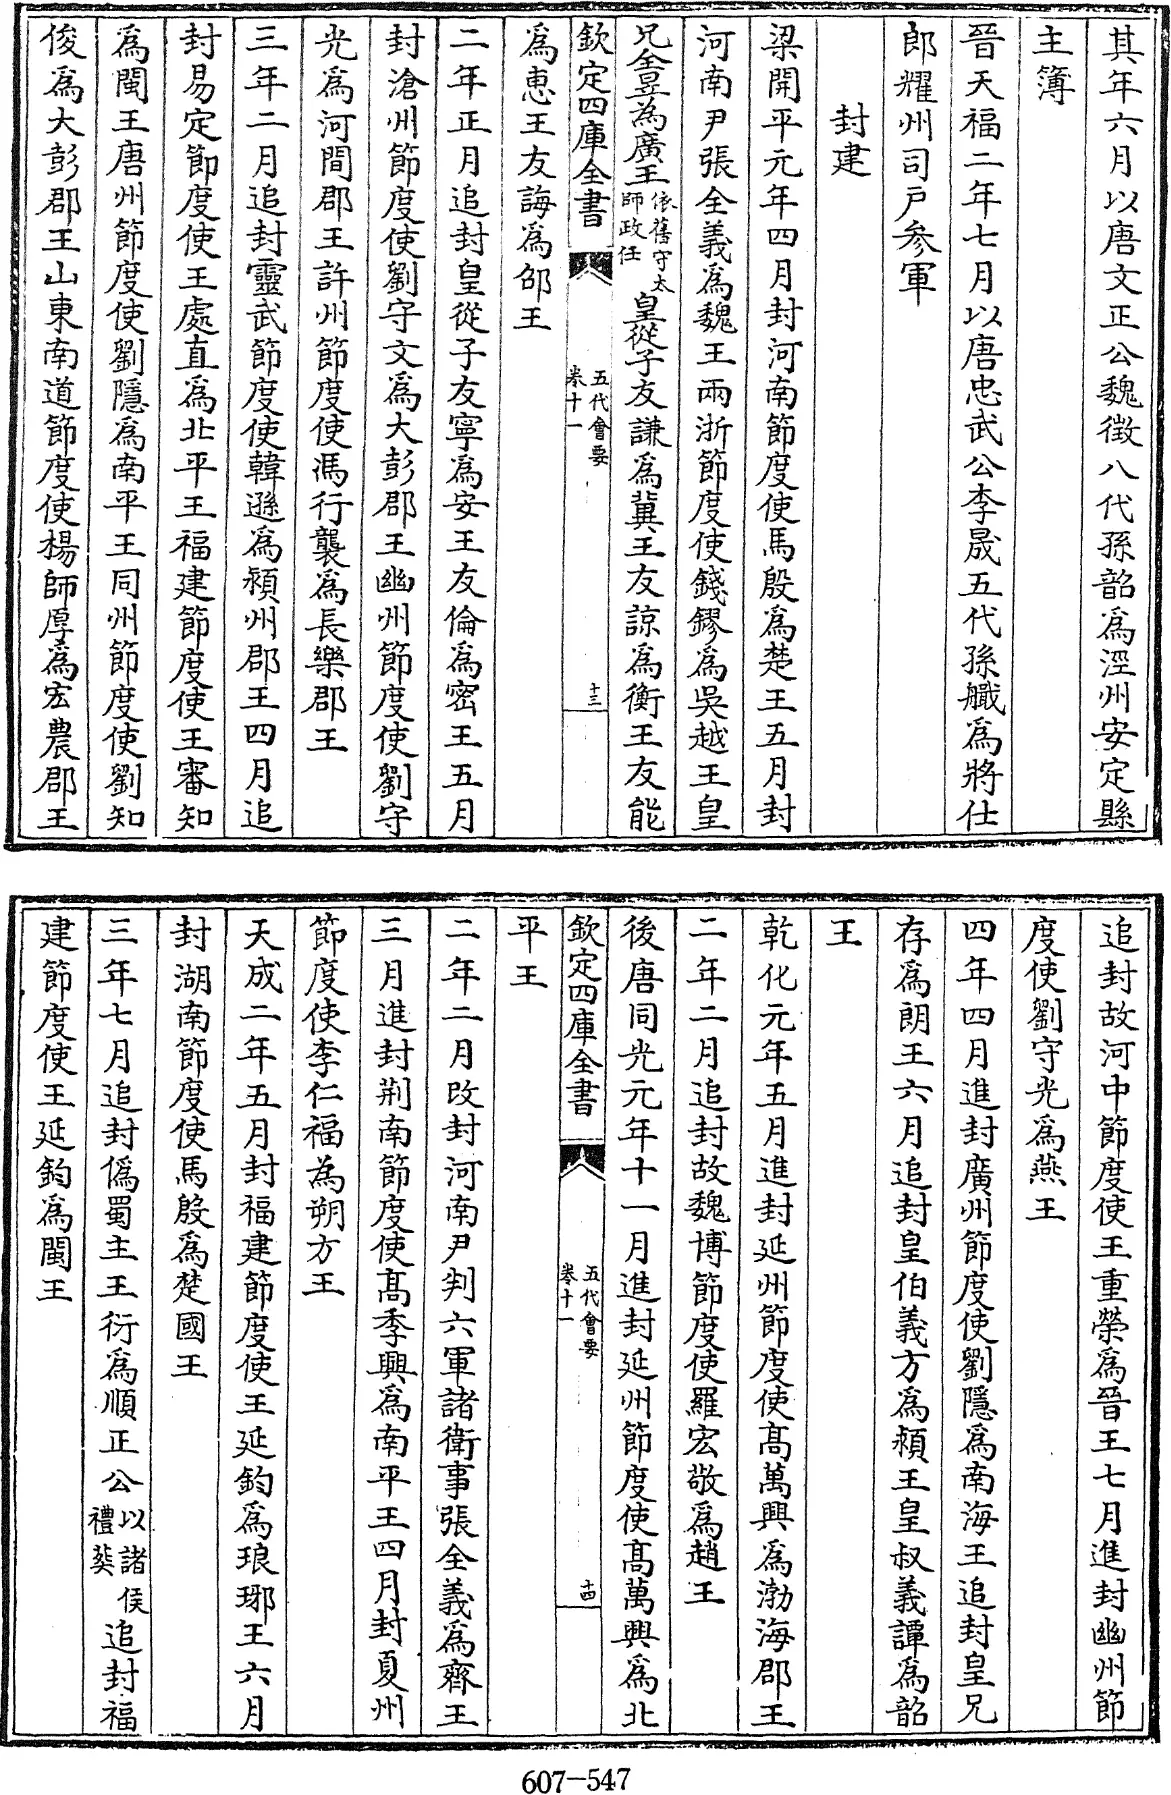 其年六月以唐文正公魏徴八代孫韶爲涇州安定縣
主簿
晉天福二年七月以唐忠武公李晟五代孫艤爲將仕
郎耀州司户參軍
封建
梁開平元年四月封河南節度使馬殷爲楚王五月封
河南尹張全義爲魏王兩浙節度使錢鏐爲吳越王皇
兄全昱為廣王依舊守太師政仕皇從子友謙爲冀王友諒爲衡王友能
欽定四庫全書
五代會要
卷十一
十三
爲惠王友誨爲邠王
二年正月追封皇從子友寧爲安王友倫爲密王五月
封滄州節度使劉守文爲大彭郡王幽州節度使劉守
光爲河間郡王許州節度使馮行襲爲長樂郡王
三年二月追封靈武節度使韓遜爲潁州郡王四月追
封易定節度使王處直爲北平王福建節度使王審知
爲閩王唐州節度使劉隱爲南平王同州節度使劉知
俊爲大彭郡王山東南道節度使楊師厚爲宏農郡王
追封故河中節度使王重榮爲晉王七月進封幽州節
度使劉守光爲燕王
四年四月進封廣州節度使劉隱爲南海王追封皇兄
存爲朗王六月追封皇伯義方爲潁王皇叔義譚爲韶
王
乾化元年五月進封延州節度使髙萬興爲渤海郡王
二年二月追封故魏博節度使羅宏敬爲趙王
後唐同光元年十一月進封延州節度使髙萬興爲北
欽定四庫全書
五代會要
卷十一
十四
平王
二年二月改封河南尹判六軍諸衛事張全義爲齊王
三月進封荆南節度使髙季興爲南平王四月封夏州
節度使李仁福為朔方王
天成二年五月封福建節度使王延鈞爲琅琊王六月
封湖南節度使馬殷爲楚國王
三年七月追封僞蜀主王衍爲順正公以諸侯禮葬追封福
建節度使王延鈞爲閩王
607-547